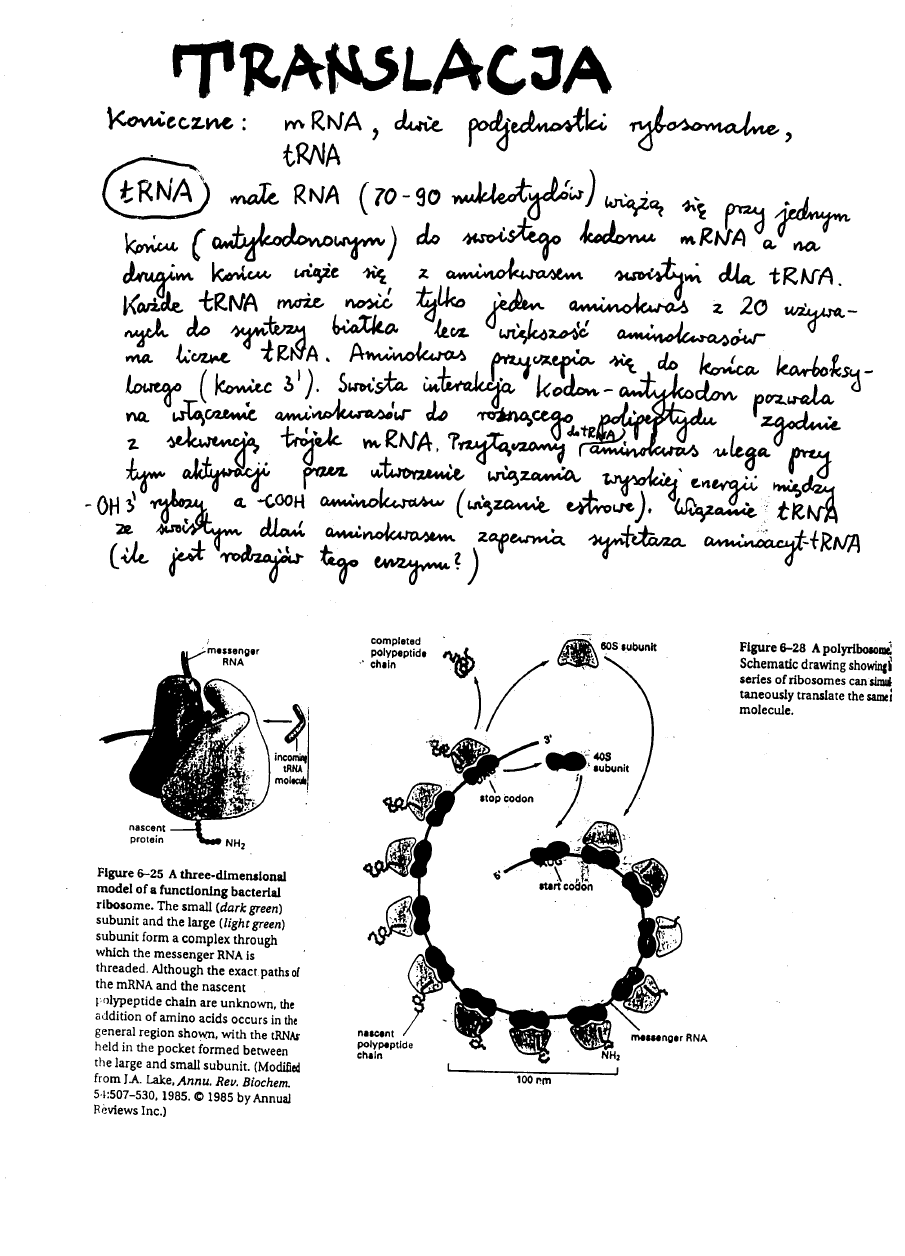 TRANSLACJA
Konieczne: mRNA, dwie podjednostki rybosomalne,
tRNA
tRNA małe RNA (70-90 nukleotydów) wiążą się przy jednym
końcu (antykodonowym) do swoistego kodonu mRNA a na
drugim końcu wiąże się z aminokwasem swoistym dla tRNA.
Każde tRNA może nosić tylko jeden aminokwas z 20 używa-
nych do syntezy białka lecz większość aminokwasów
ma liczne tRNA. Aminokwas przyczepia się do końca karboksy-
lowego (koniec 3'). Swoista interakcja kodon-antykodon pozwala
na włączenie aminokwasów do rosnącego polipeptydu zgodnie
z sekwencją trójek mRNA. Przyłączany do tRNA aminokwas ulega przy
tym aktywacji przez utworzenie wiązania wysokiej energii między
-OH 3' rybozy a -COOH aminokwasu (wiązanie estrowe). Wiązanie tRNA
ze swoistym dlań aminokwasem zapewnia syntetaza aminoacyl-tRNA
(ile jest rodzajów tego enzymu?)
messenger
RNA
incoming
tRNA
molecule
nascent
protein
NH2
Figure 6–25 A three-dimensional
model of a functioning bacterial
ribosome. The small (dark green)
subunit and the large (light green)
subunit form a complex through
which the messenger RNA is
threaded. Although the exact paths of
the mRNA and the nascent
polypeptide chain are unknown, the
addition of amino acids occurs in the
general region shown, with the tRNAs
held in the pocket formed between
the large and small subunit. (Modified
from J.A. Lake, Annu. Rev. Biochem.
54:507–530, 1985. © 1985 by Annual
Reviews Inc.)
completed
polypeptide
chain
60S subunit
3'
40S
subunit
stop codon
AUG
5'
start codon
nascent
polypeptide
chain
NH2
messenger RNA
100 nm
Figure 6–28 A polyribosome.
Schematic drawing showing
series of ribosomes can simul
taneously translate the same
molecule.